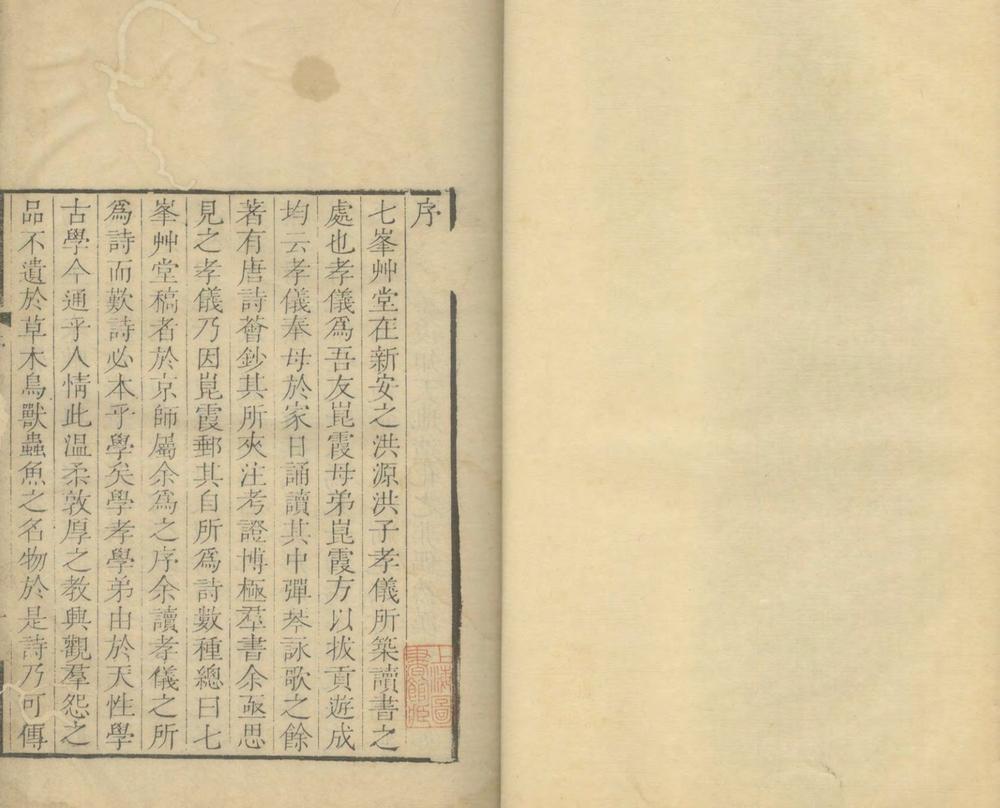 序
七峯艸堂在新安之洪源洪子孝儀所築讀書之
處也孝儀爲吾友崑霞母弟崑霞方以拔貢遊成
均云孝儀奉母於家日誦讀其中彈琴詠歌之餘
著有唐詩薈鈔其所夾注考證博極羣書余亟思
見之孝儀乃因崑霞郵其自所爲詩數種總曰七
峯艸堂稿者於京師屬余爲之序余讀孝儀之所
爲詩而歎詩必本乎學矣學孝學弟由於天性學
古學今通乎人情此温柔敦厚之教興觀羣怨之
品不遺於草木鳥獸蟲魚之名物於是詩乃可傳
上海圖
書館藏